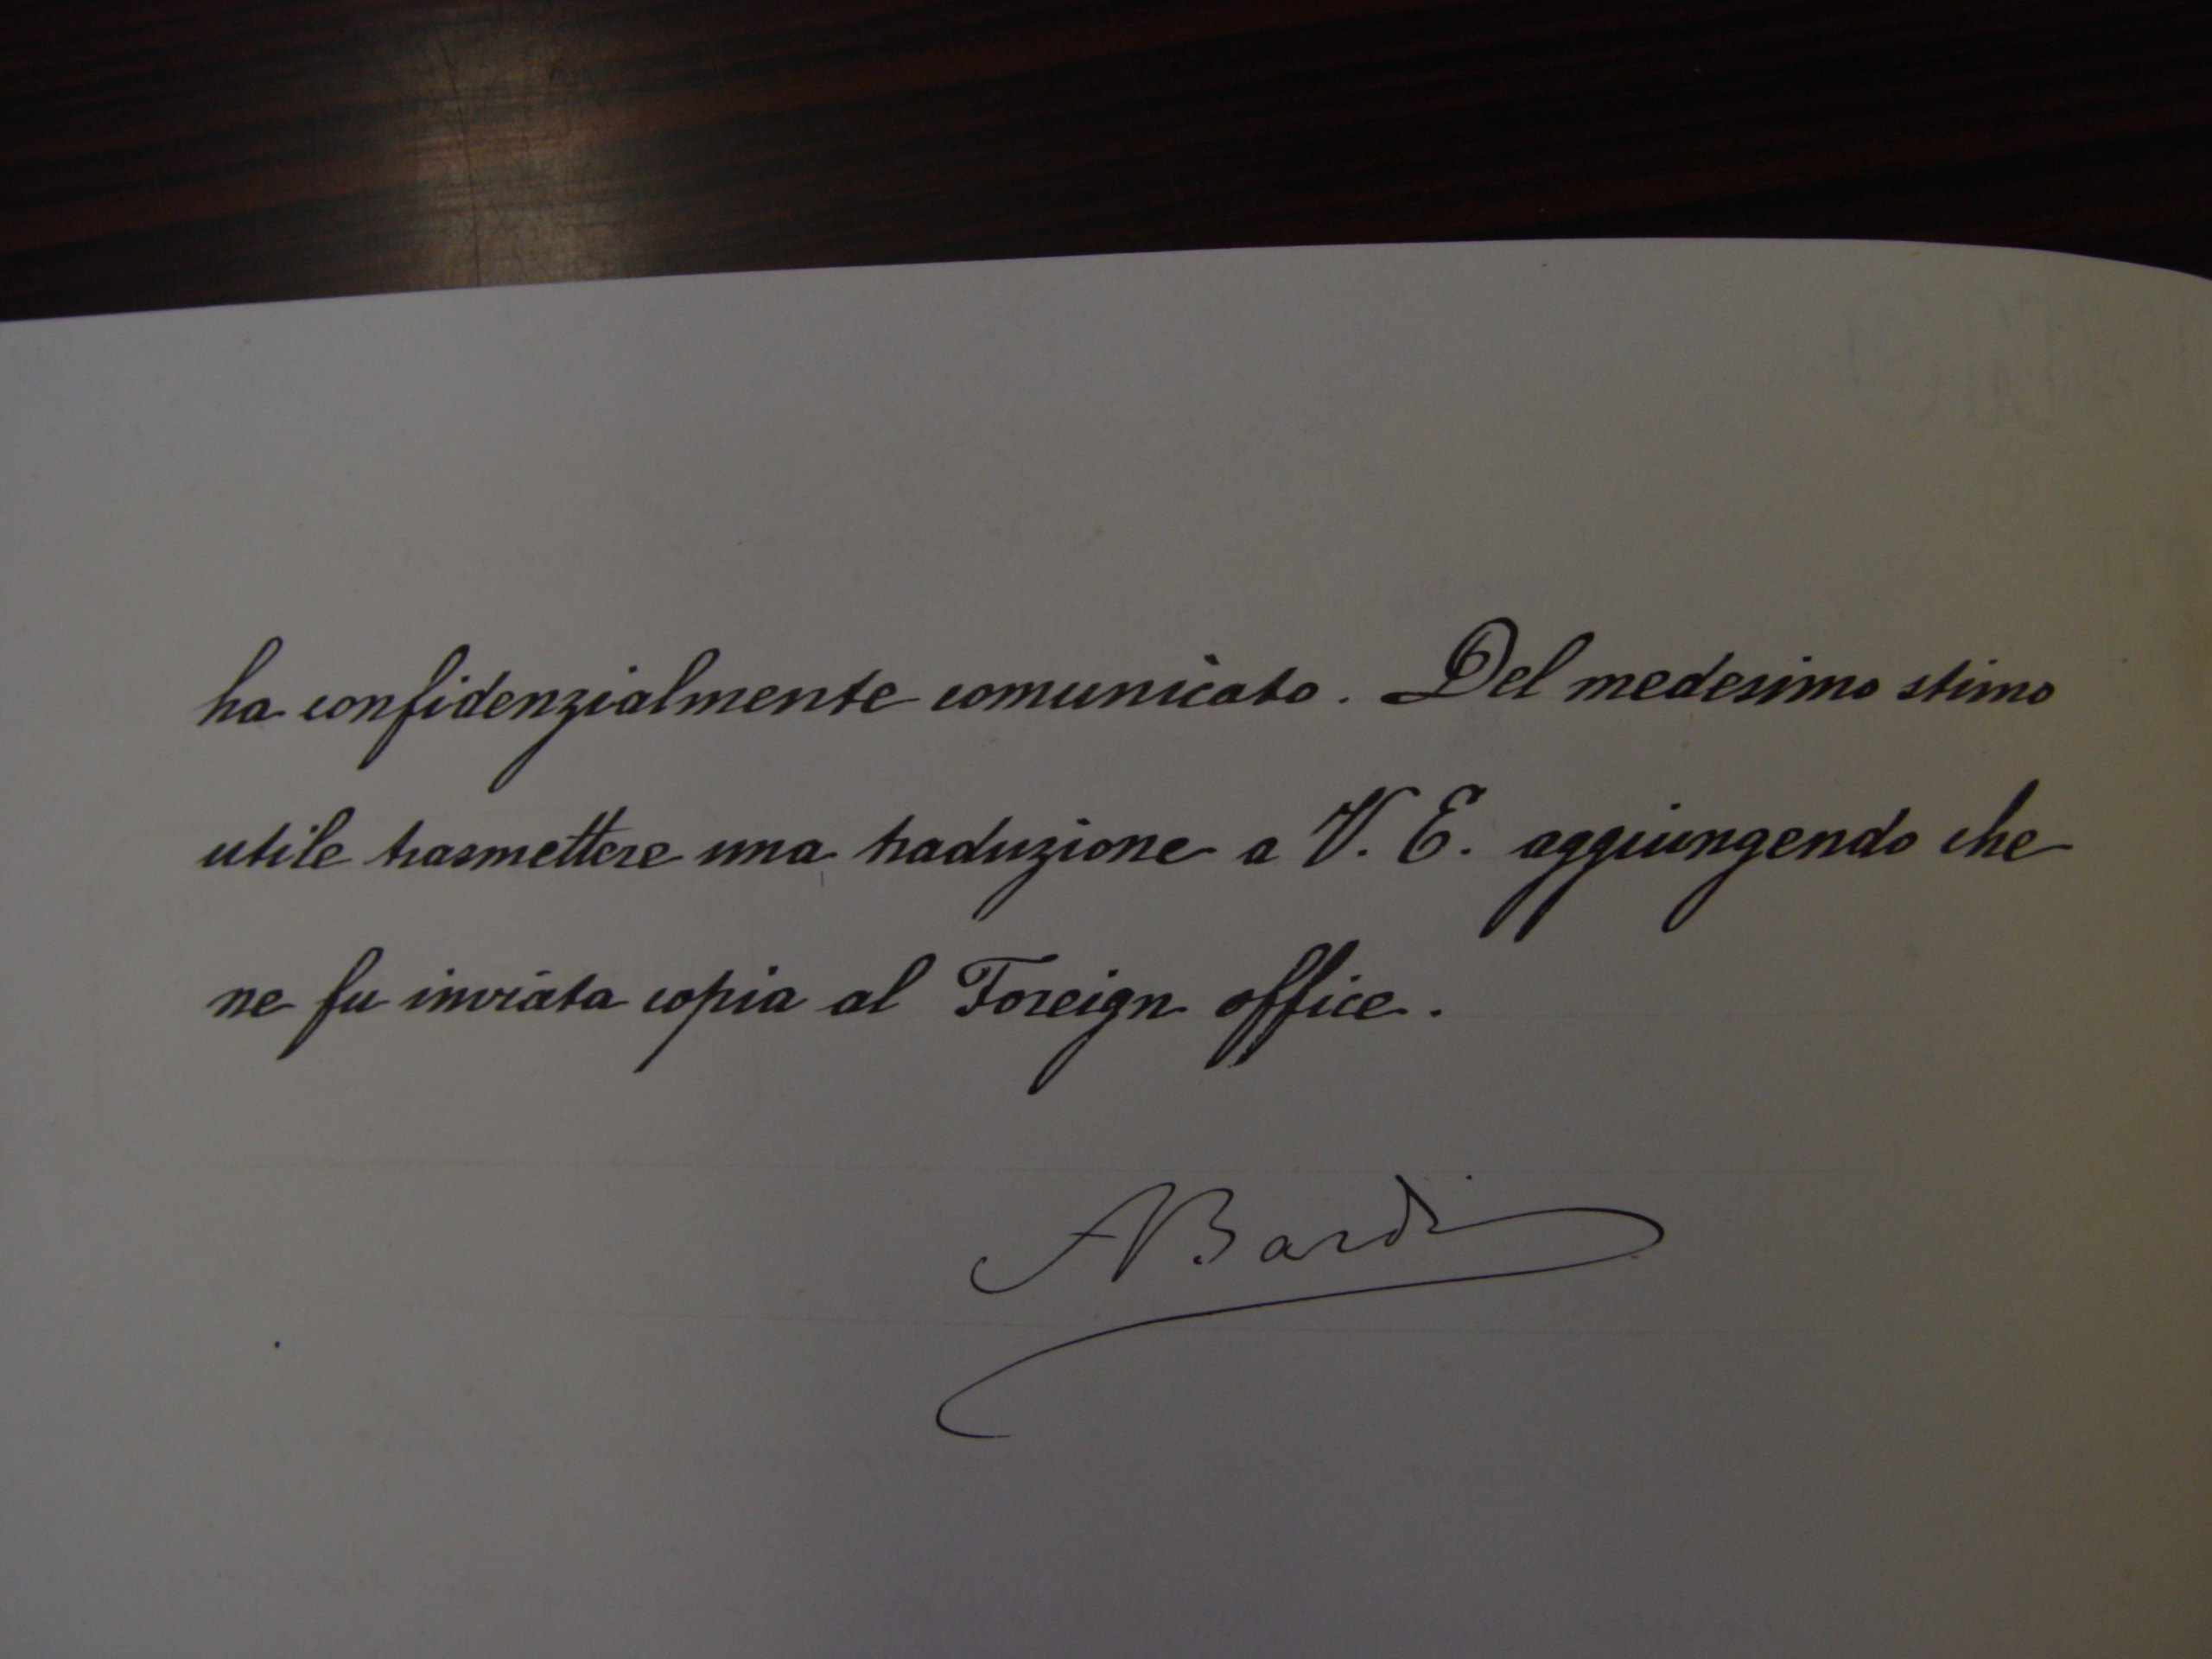 ha confidenzialmente comunicato. Del medesimo stimo
utile trasmettere una traduzione a V. E. aggiungendo che
ne fu inviata copia al Foreign office.
ABardi